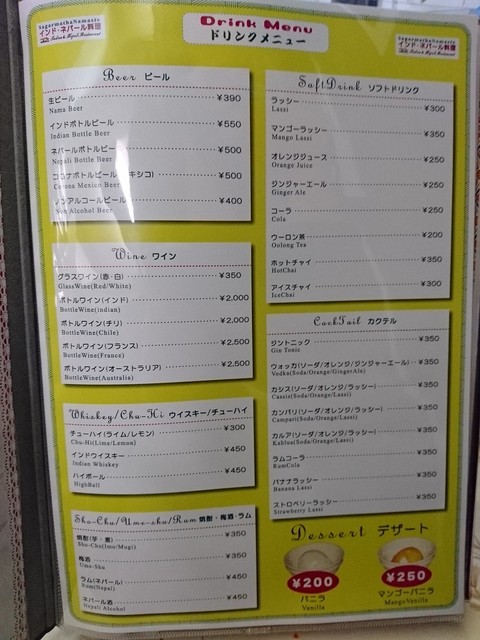 SagarmathaNamaste
インド・ネパール料理
Indian & Nepal Restaurant
Drink Menu
ドリンクメニュー
SagarmathaNamaste
インド・ネパール料理
Indian & Nepal Restaurant
Beer ビール
生ビール ¥390
Nama Beer
インドボトルビール ¥550
Indian Bottle Beer
ネパールボトルビール ¥500
Nepali Bottle Beer
コロナボトルビール(メキシコ) ¥500
Corona Mexico Beer
ノンアルコールビール ¥400
Non Alcohol Beer
Wine ワイン
グラスワイン(赤・白) ¥350
GlassWine(Red/White)
ボトルワイン(インド) ¥2,000
BottleWine(indian)
ボトルワイン(チリ) ¥2,000
BottleWine(Chile)
ボトルワイン(フランス) ¥2,500
BottleWine(France)
ボトルワイン(オーストラリア) ¥2,500
BottleWine(Australia)
Whiskey/Chu-Hi ウイスキー/チューハイ
チューハイ(ライム/レモン) ¥300
Chu-Hi(Lime/Lemon)
インドウイスキー ¥450
Indian Whiskey
ハイボール ¥450
HighBall
Sho-Chu/Ume-shu/Ram 焼酎・梅酒・ラム
焼酎(芋・麦) ¥350
Sho-Chu(Imo/Mugi)
梅酒 ¥350
Ume-Shu
ラム(ネパール) ¥450
Ram(Nepal)
ネパール酒 ¥450
Nepali Alcohol
SaftDrink ソフトドリンク
ラッシー ¥300
Lassi
マンゴーラッシー ¥350
Mango Lassi
オレンジジュース ¥250
Orange Juice
ジンジャーエール ¥250
Ginger Ale
コーラ ¥250
Cola
ウーロン茶 ¥200
Oolong Tea
ホットチャイ ¥350
HotChai
アイスチャイ ¥300
IceChai
CockTail カクテル
ジントニック ¥350
Gin Tonic
ウォッカ(ソーダ/オレンジ/ジンジャーエール) ¥350
Vodka(Soda/Orange/GingerAle)
カシス(ソーダ/オレンジ/ラッシー) ¥350
Cassis(Soda/Orange/Lassi)
カンパリ(ソーダ/オレンジ/ラッシー) ¥350
Campari(Soda/Orange/Lassi)
カルア(ソーダ/オレンジ/ラッシー) ¥350
Kahlua(Soda/Orange/Lassi)
ラムコーラ ¥350
RumCola
バナナラッシー ¥350
Banana Lassi
ストロベリーラッシー ¥350
Strawberry Lassi
Dessert デザート
¥200
バニラ
Vanilla
¥250
マンゴーバニラ
MangoVanilla